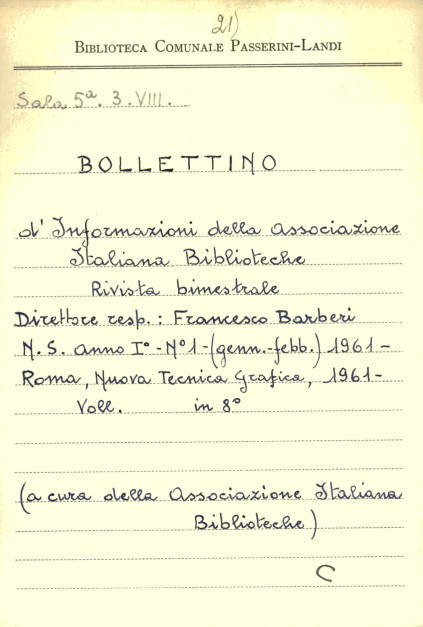 21)
BIBLIOTECA COMUNALE PASSERINI-LANDI
Sala 5ª. 3. VIII.
BOLLETTINO
d'Informazioni della Associazione
Italiana Biblioteche
Rivista bimestrale
Direttore resp.: Francesco Barberi
N.S. anno I° - N°1 - (genn.-febb.) 1961 -
Roma, Nuova Tecnica Grafica, 1961 -
Voll. in 8°
(a cura della Associazione Italiana
Biblioteche)
C